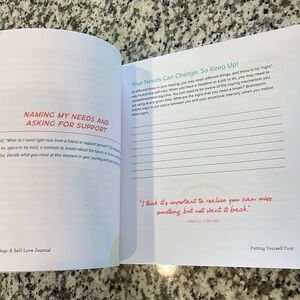 NAMING MY NEEDS AND
ASKING FOR SUPPORT
"What do I need right now from a friend or support person?"
space to be mad, a moment to dream about the future,
Decide what you need at this moment in your journey and
A Self-Love Journal
Your Needs Can Change, So Keep Up!
different times in your healing, you may need different things, and there is no "right"
way to practice self-care. When you have a deadline or a job to do, you may need to
You just need to be aware of the coping mechanism your
using at any given time. What are the signs that you need a break? Brainstorm
helpful
to put space between you and your emotional intensity when you notice
these signs.
"I think it's important to realize you can miss
something, but not want it back."
—PAULO COELHO
Putting Yourself First